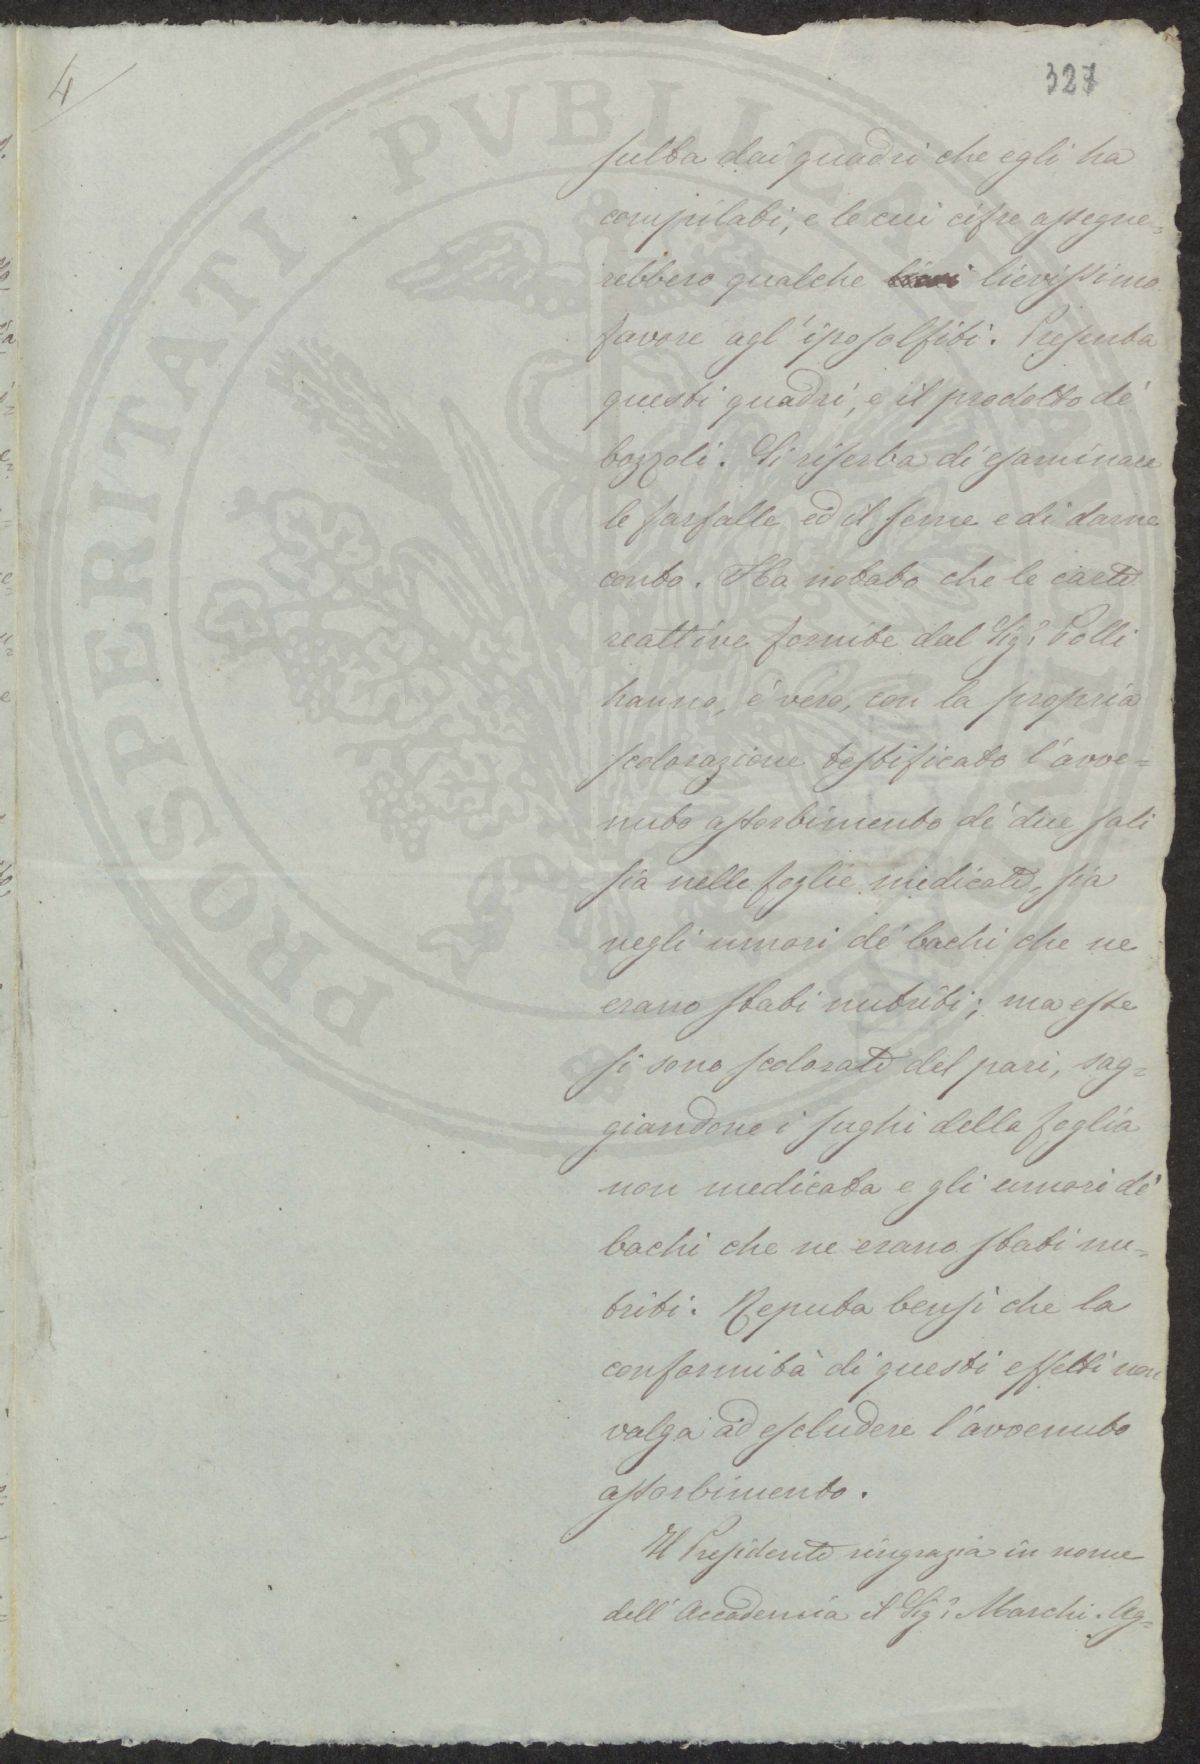 4
327
sulta dai quadri che egli ha
compilati, e le cui cifre assegne=
rebbero qualche lievissimo
favore agl'iposolfiti. Presenta
questi quadri, e il prodotto de'
bozzoli. Si riserba di esaminare
le farfalle ed il seme e di darne
conto. Ha notato che le carte
reattive fornite dal Sigr Polli
hanno, è vero, con la propria
scolorazione testificato l'avve=
nuto assorbimento de' due sali
sia nelle foglie medicate, sia
negli umori de' bachi che ne
erano stati nutriti; ma esse
si sono scolorate del pari, sag=
giandone i sughi della foglia
non medicata e gli umori de'
bachi che ne erano stati nu=
triti. Reputa bensì che la
conformità di questi effetti non
valga ad escludere l'avvenuto
assorbimento.
Il Presidente ringrazia in nome
dell'Accademia il Sigr Marchi. Ag=
PROSPERITATI PVBLICAE